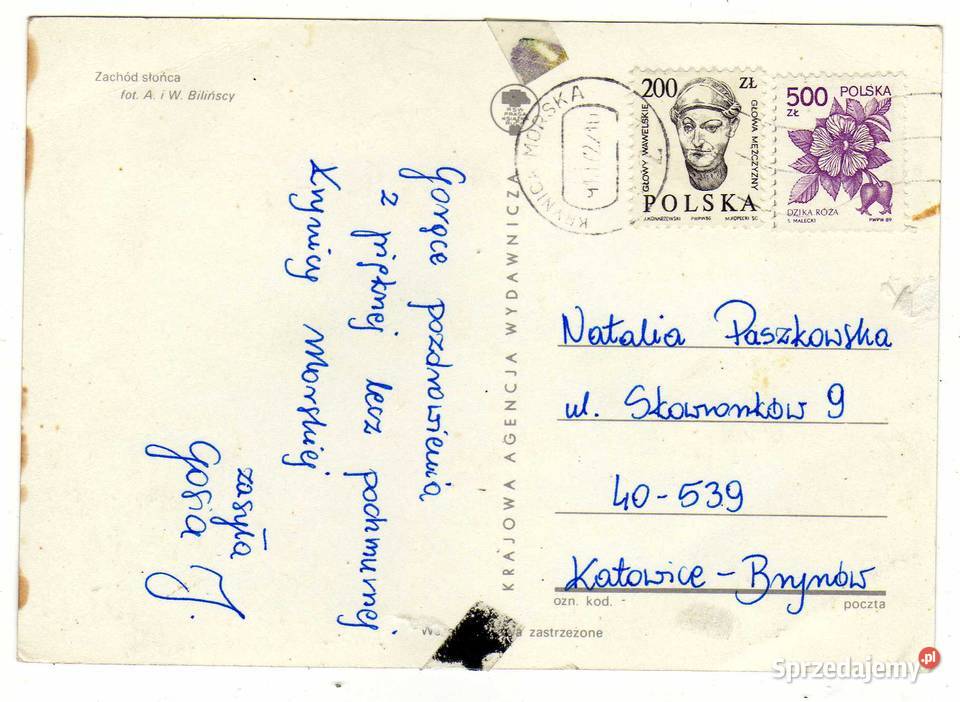 Zachód słońca
fot. A. i W. Bilińscy
Gorące pozdrowienia
z pięknej lecz pochmurnej
Krynicy Morskiej
zasyła
Gosia J.
KRAJOWA AGENCJA WYDAWNICZA
RSW
PRASA
KSIĄŻKA
RUCH
KRYNICA MORSKA
200 ZŁ
GŁOWY WAWELSKIE
GŁOWA MĘŻCZYZNY
POLSKA
PWPW 86
500 POLSKA
ZŁ
DZIKA RÓŻA
S. MAŁECKI PWPW 89
Natalia Paszkowska
ul. Skowronków 9
40-539
Katowice-Brynów
ozn. kod. poczta
zastrzeżone
Sprzedajemy.pl